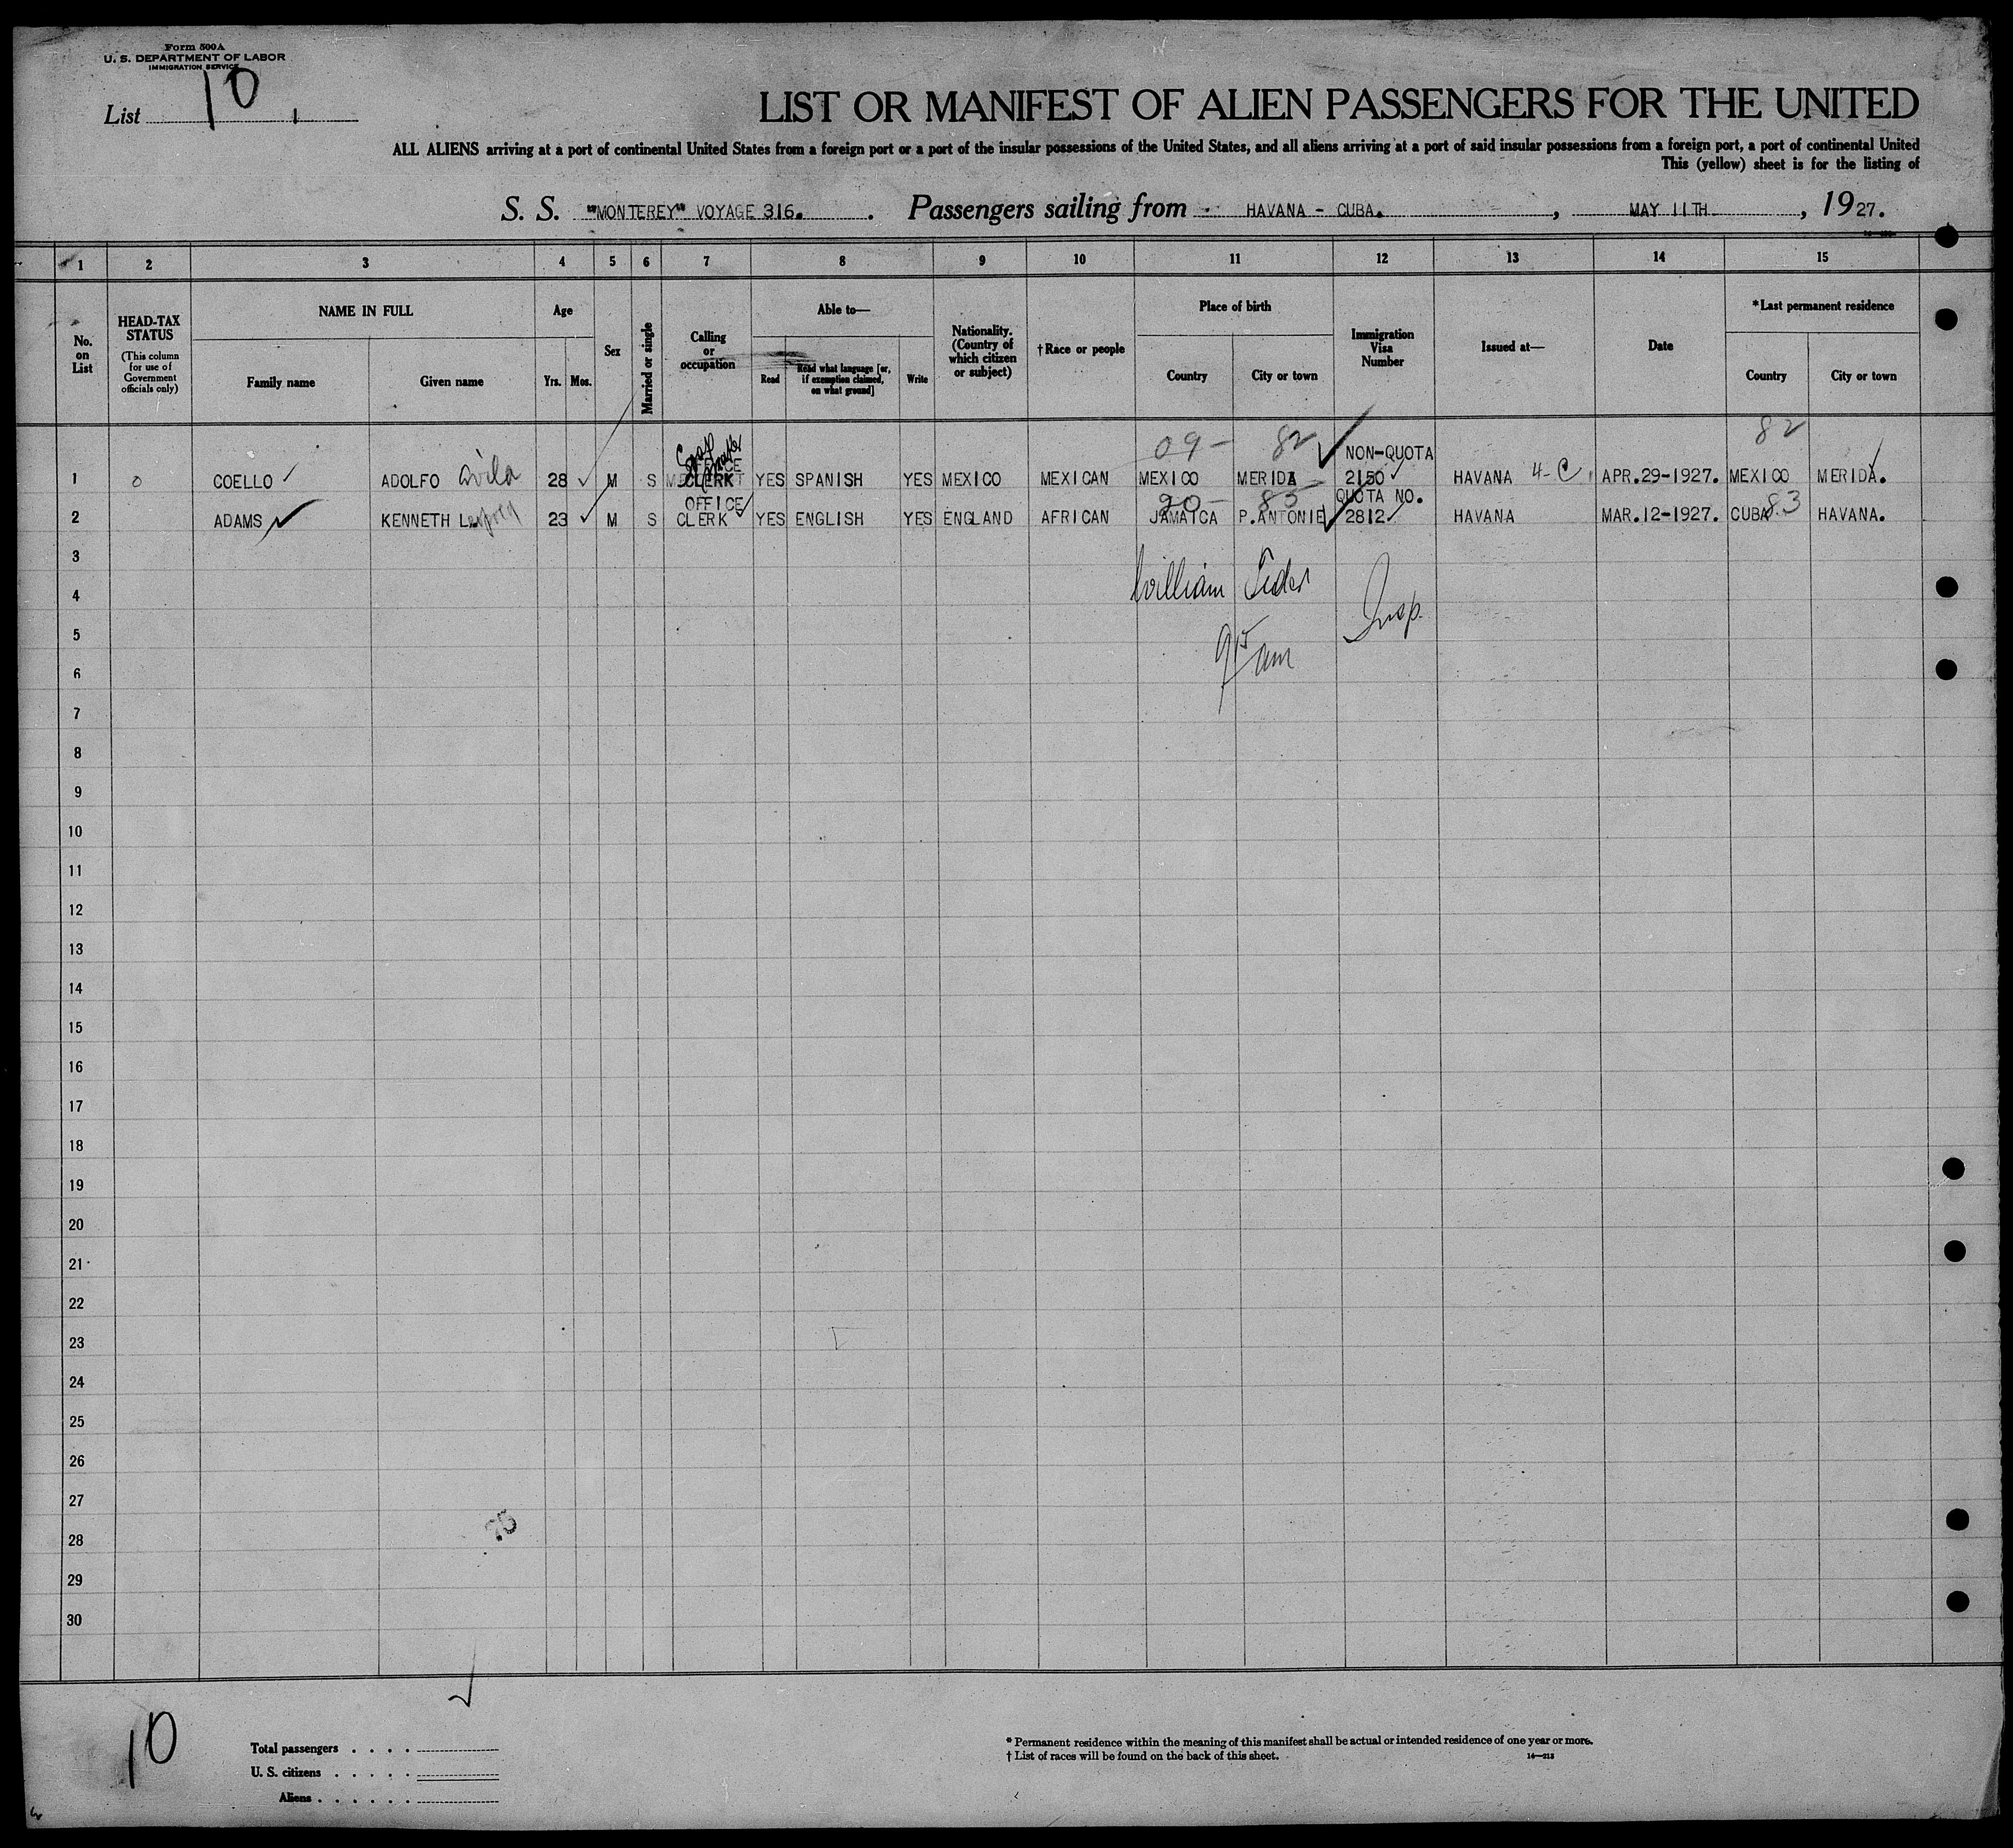 Form 500A
U. S. DEPARTMENT OF LABOR
IMMIGRATION SERVICE
List 10
LIST OR MANIFEST OF ALIEN PASSENGERS FOR THE UNITED
ALL ALIENS arriving at a port of continental United States from a foreign port or a port of the insular possessions of the United States, and all aliens arriving at a port of said insular possessions from a foreign port, a port of continental United
This (yellow) sheet is for the listing of
S. S. "MONTEREY" VOYAGE 316. . Passengers sailing from HAVANA - CUBA. , MAY 11TH , 1927.
1 2 3 4 5 6 7 8 9 10 11 12 13 14 15
No. on List
HEAD-TAX STATUS
(This column for use of Government officials only)
NAME IN FULL
Family name Given name
Age
Yrs. Mos.
Sex
Married or single
Calling or occupation
Able to—
Read
Read what language [or, if exemption claimed, on what ground]
Write
Nationality. (Country of which citizen or subject)
†Race or people
Place of birth
Country City or town
Immigration Visa Number
Issued at—
Date
*Last permanent residence
Country City or town
09- 82 82
NON-QUOTA
1 0 COELLO ADOLFO Avila 28 M S CLERK YES SPANISH YES MEXICO MEXICAN MEXICO MERIDA 2150 HAVANA 4-C APR.29-1927. MEXICO MERIDA.
OFFICE 90- 85 QUOTA NO. 83
2 ADAMS KENNETH 23 M S CLERK YES ENGLISH YES ENGLAND AFRICAN JAMAICA P.ANTONIE 2812 HAVANA MAR.12-1927. CUBA HAVANA.
3
William
4
Insp.
5
915 am
6
7
8
9
10
11
12
13
14
15
16
17
18
19
20
21
22
23
24
25
26
27
28
29
30
10
Total passengers . . . .
U. S. citizens . . . . .
Aliens . . . . . .
* Permanent residence within the meaning of this manifest shall be actual or intended residence of one year or more.
† List of races will be found on the back of this sheet.
14—213